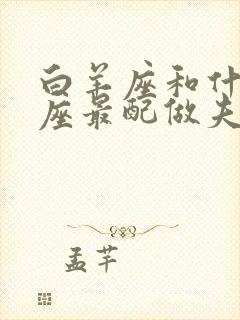 白羊座和什
座最配做夫
孟芊